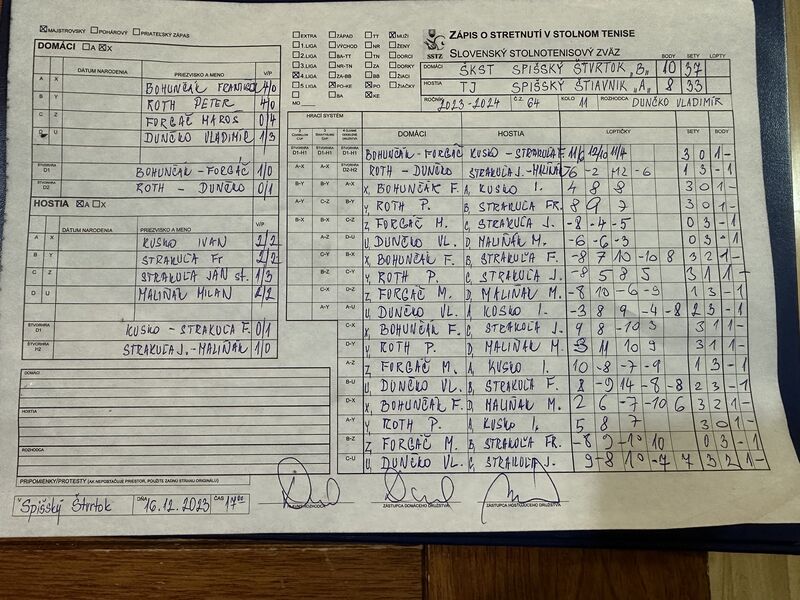 MAJSTROVSKÝ POHÁROVÝ PRIATEĽSKÝ ZÁPAS
DOMÁCI A X
DÁTUM NARODENIA PRIEZVISKO A MENO V/P
A X BOHUNČÁK FRANTIŠEK 4/0
B Y ROTH PETER 4/0
C Z FORGÁČ MAROŠ 0/4
D U DUNČKO VLADIMÍR 1/3
ŠTVORHRA D1 BOHUNČÁK - FORGÁČ 1/0
ŠTVORHRA D2 ROTH - DUNČKO 0/1
HOSTIA A X
DÁTUM NARODENIA PRIEZVISKO A MENO V/P
A X KUSKO IVAN 2/2
B Y STRAKUĽA Fr 2/2
C Z STRAKUĽA JÁN st. 1/3
D U MALIŇÁK MILAN 2/2
ŠTVORHRA KUSKO - STRAKUĽA F. 0/1
ŠTVORHRA H2 STRAKUĽA J. - MALIŇÁK 1/0
DOMÁCI
HOSTIA
ROZHODCA
PRIPOMIENKY/PROTESTY (AK NEPOSTAČUJE PRIESTOR, POUŽITE ZADNÚ STRANU ORIGINÁLU)
V Spišský Štvrtok DŇA 16.12.2023 ČAS 17 00
EXTRA ZÁPAD TT MUŽI
1.LIGA VÝCHOD NR ŽENY
2.LIGA BA-TT TN DORCI
3.LIGA NR-TN ZA DORKY
4.LIGA ZA-BB BB ŽIACI
5.LIGA PO-KE PO ŽIAČKY
BA KE
MO
SSTZ
ZÁPIS O STRETNUTÍ V STOLNOM TENISE
SLOVENSKÝ STOLNOTENISOVÝ ZVÄZ
BODY SETY LOPTY
DOMÁCI ŠKST SPIŠSKÝ ŠTVRTOK "B" 10 37
HOSTIA TJ SPIŠSKÝ ŠTIAVNIK "A" 8 33
ROČNÍK 2023-2024 Č.Z. 64 KOLO 11 ROZHODCA DUNČKO VLADIMÍR
HRACÍ SYSTÉM
DOMÁCI HOSTIA LOPTIČKY SETY BODY
BOHUNČÁK - FORGÁČ KUSKO - STRAKUĽA F. 11/6 12/10 11/4 3 0 1 -
ROTH - DUNČKO STRAKUĽA J. - MALIŇÁK -6 1 3 - 1
X, BOHUNČÁK F. A, KUSKO I. 4 8 8 3 0 1 -
Y, ROTH P. B, STRAKUĽA FR. 8 9 7 3 0 1 -
Z, FORGÁČ M. C, STRAKUĽA J. -8 -4 -5 0 3 - 1
U, DUNČKO VL. D, MALIŇÁK M. -6 -6 -3 0 3 - 1
X, BOHUNČÁK F. B, STRAKUĽA F. -8 7 10 -10 8 3 2 1 -
Y, ROTH P. C, STRAKUĽA J. -8 5 8 5 3 1 1 -
Z, FORGÁČ M. D, MALIŇÁK M. -8 10 -6 -9 1 3 - 1
U, DUNČKO VL. A, KUSKO I. -3 8 9 -4 -8 2 3 - 1
X, BOHUNČÁK F. C, STRAKUĽA J. 9 8 -10 3 3 1 1 -
Y, ROTH P. D, MALIŇÁK M. -3 11 10 9 3 1 1 -
Z, FORGÁČ M. A, KUSKO I. 10 -8 -7 -9 1 3 - 1
U, DUNČKO VL. B, STRAKUĽA F. 8 -9 14 -8 -8 2 3 - 1
X, BOHUNČÁK F. D, MALIŇÁK M. 2 6 -7 -10 6 3 2 1 -
Y, ROTH P. A, KUSKO I. 5 8 7 3 0 1 -
Z, FORGÁČ M. B, STRAKUĽA FR. 0 3 - 1
U, DUNČKO VL. C, STRAKUĽA J. 9 -8 10 -7 7 3 2 1 -
HLAVNÝ ROZHODCA ZÁSTUPCA DOMÁCEHO DRUŽSTVA ZÁSTUPCA HOSŤUJÚCEHO DRUŽSTVA